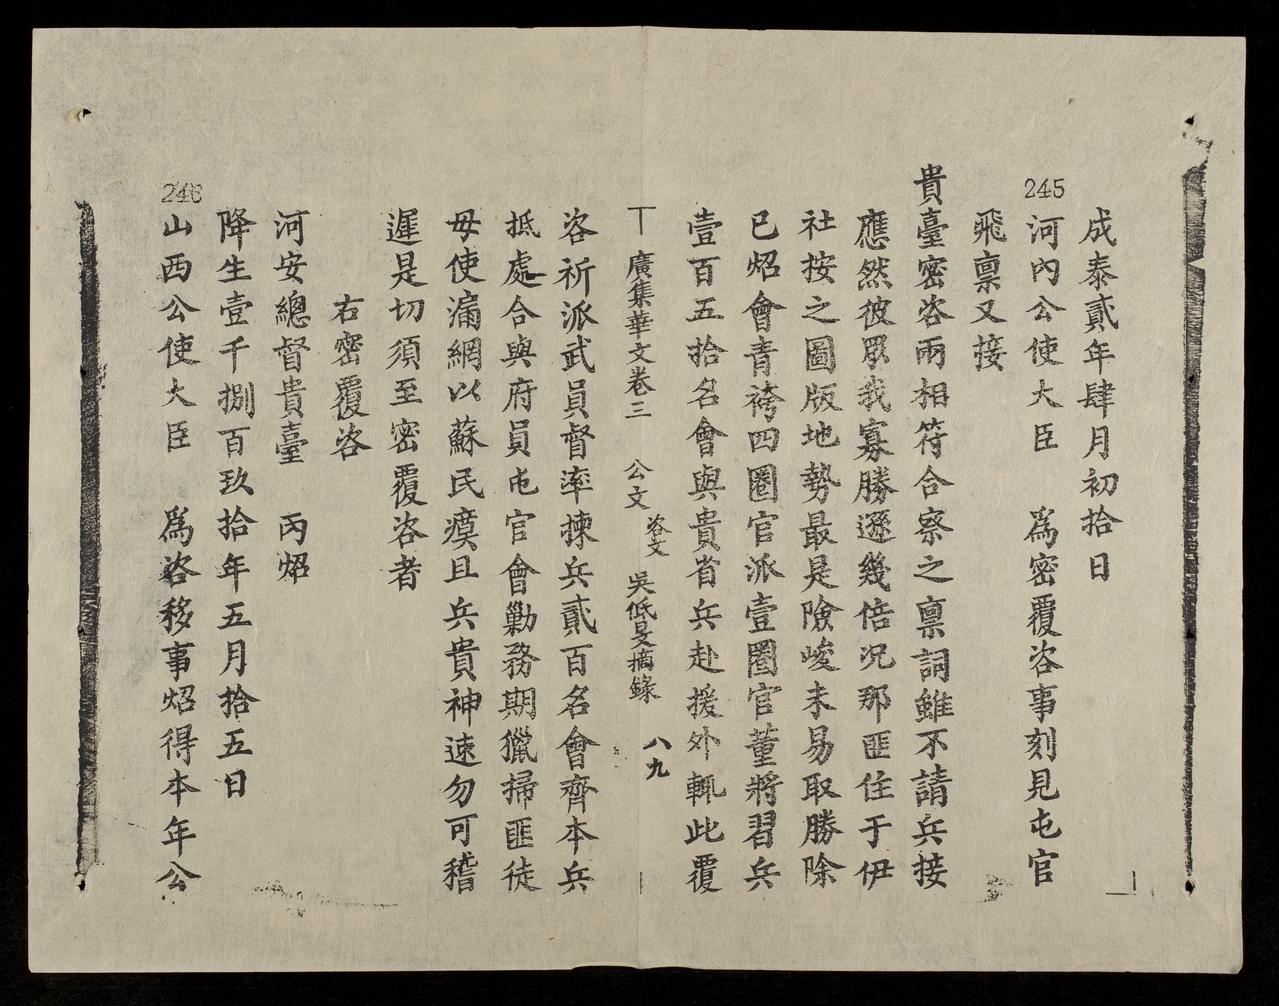 成泰貳年肆月初拾日
245
河內公使大臣 爲密覆咨事刻見屯官
飛禀又接
貴臺密咨兩相符合察之禀詞雖不請兵接
應然彼眾我寡勝遜幾倍況那匪住于伊
社按之圖版地勢最是險峻未易取勝除
已炤會青袴四圈官派壹圈官董將習兵
壹百五拾名會與貴省兵赴援外輒此覆
廣集華文卷三 公文 咨文 吳低旻摘錄 八九
咨祈派武員督率揀兵貳百名會齊本兵
抵處合與府員屯官會勦務期獵掃匪徒
毋使漏網以蘇民瘼且兵貴神速勿可稽
遲是切須至密覆咨者
右密覆咨
河安總督貴臺 丙炤
降生壹千捌百玖拾年五月拾五日
246
山西公使大臣 爲咨移事炤得本年公